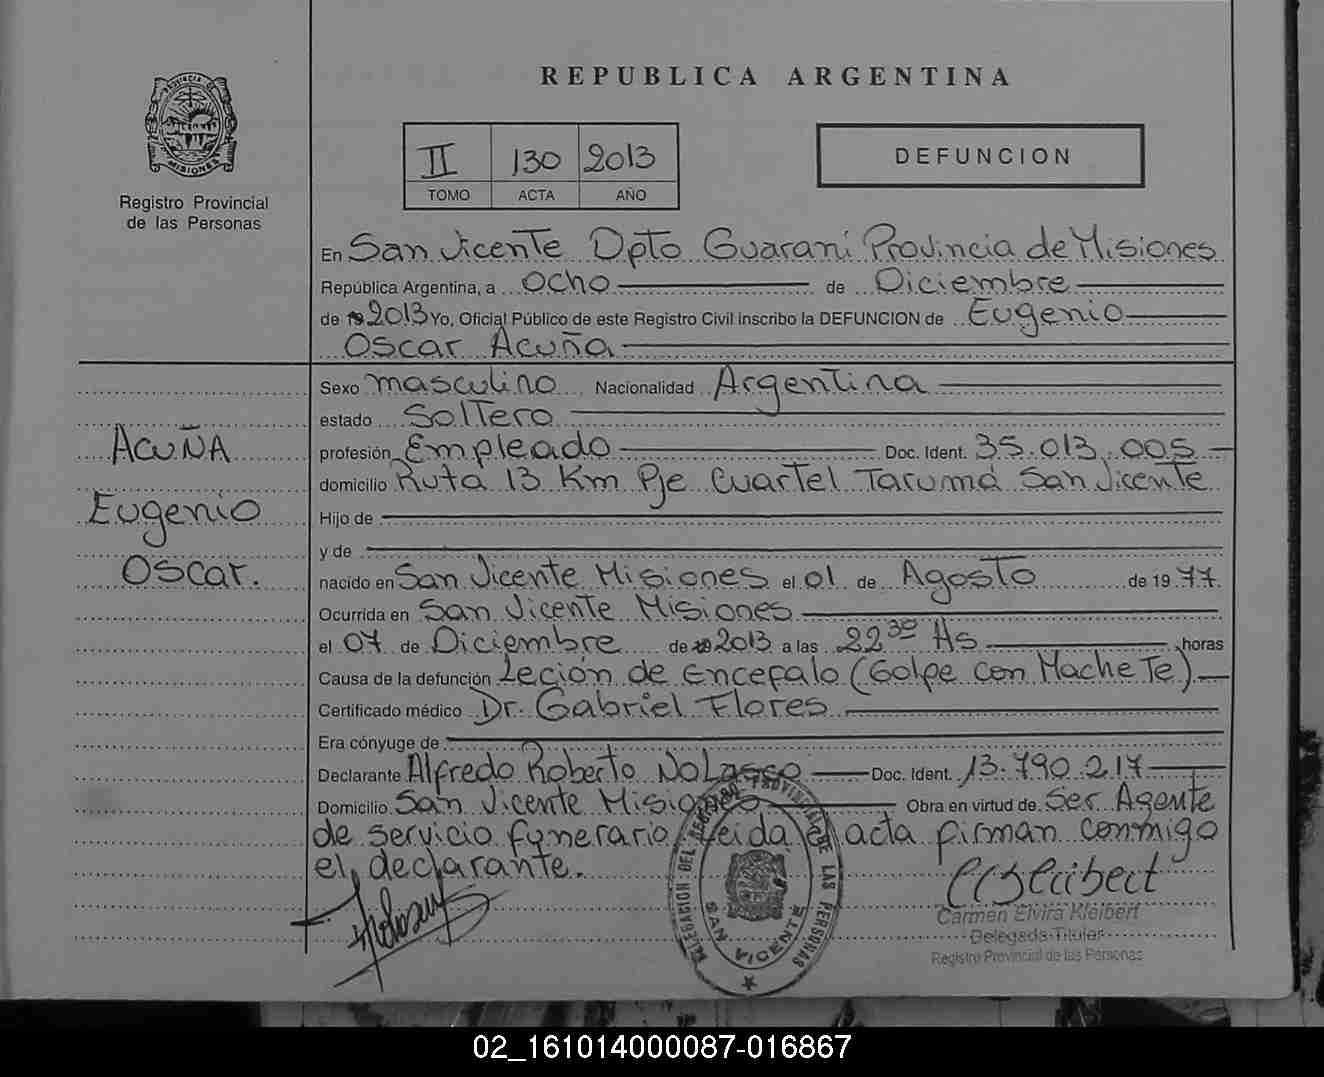 REPUBLICA ARGENTINA
PROVINCIA DE
MISIONES
Registro Provincial
de las Personas
II 130 2013
TOMO ACTA AÑO
DEFUNCION
En San Vicente Dpto Guaraní Provincia de Misiones
República Argentina, a ocho de Diciembre
de 2013 Yo, Oficial Público de este Registro Civil inscribo la DEFUNCION de Eugenio
Oscar Acuña
ACUÑA
Eugenio
Oscar.
Sexo masculino Nacionalidad Argentina
estado Soltero
profesión Empleado Doc. Ident. 35.013.005
domicilio Ruta 13 Km Pje Cuartel Tarumá San Vicente
Hijo de
y de
nacido en San Vicente Misiones el 01 de Agosto de 1977
Ocurrida en San Vicente Misiones
el 07 de Diciembre de 2013 a las 22 30 Hs horas
Causa de la defunción Leción de Encefalo (Golpe con Machete)
Certificado médico Dr. Gabriel Flores
Era cónyuge de
Declarante Alfredo Roberto Nolasco Doc. Ident. 13.790.217
Domicilio San Vicente Misiones Obra en virtud de Ser Agente
de servicio funerario Leida el acta firman conmigo
el declarante.
DELEGACION DEL REGISTRO PROVINCIAL DE LAS PERSONAS
SAN VICENTE
Carmen Elvira Kleibert
Delegada Titular
Registro Provincial de las Personas
02_161014000087-016867